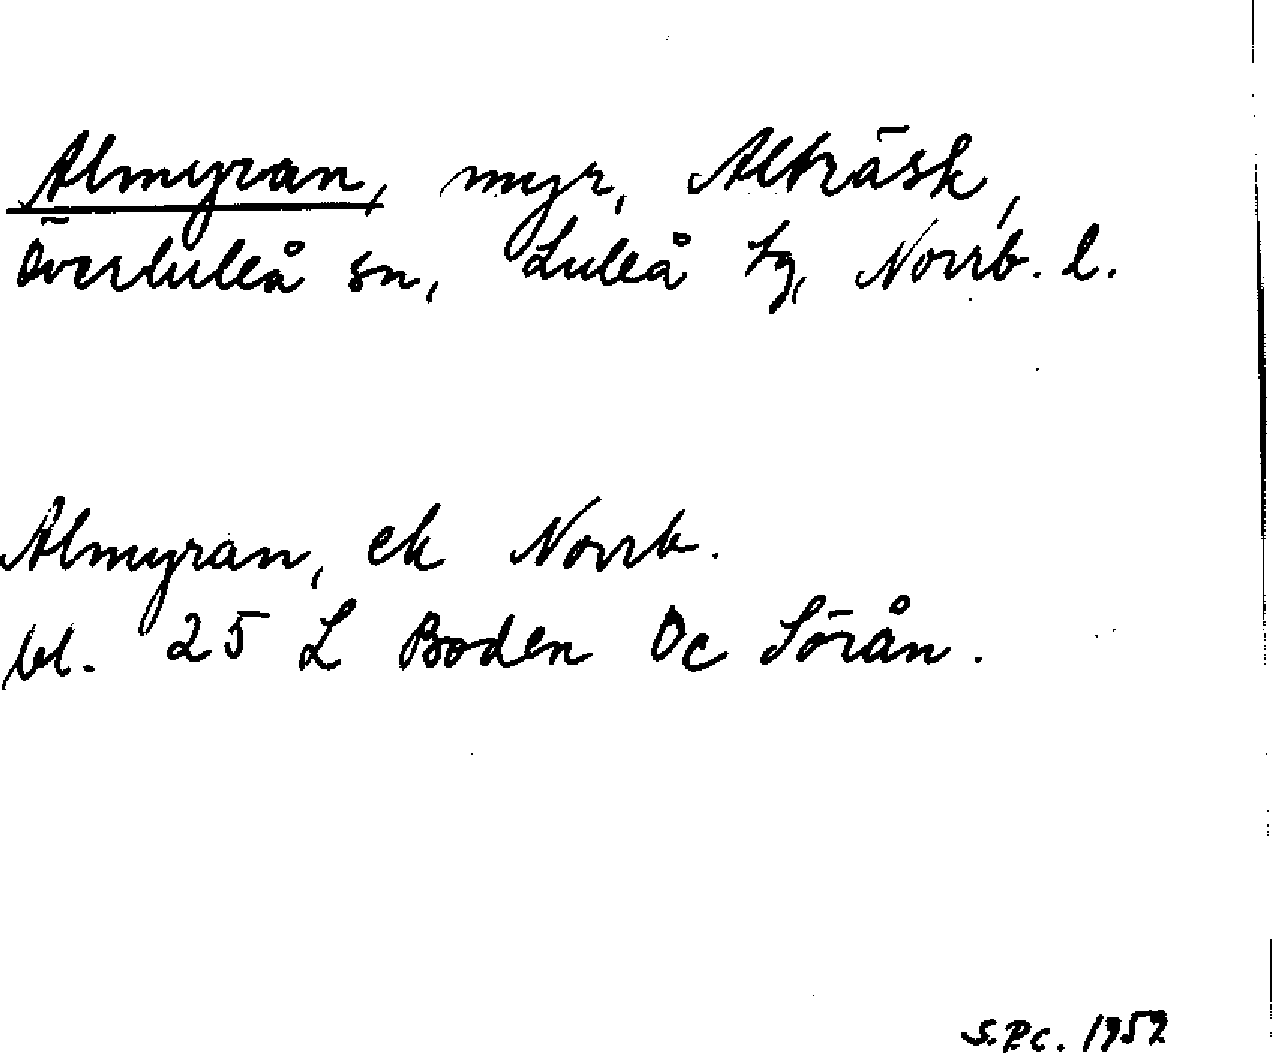 Almyran, myr, Alträsk,
Överluleå sn, Luleå tg, Norrb. l.
Almyran, ek Norrb.
bl. 25 L Boden Öc Sörån.
S.P.C. 1959